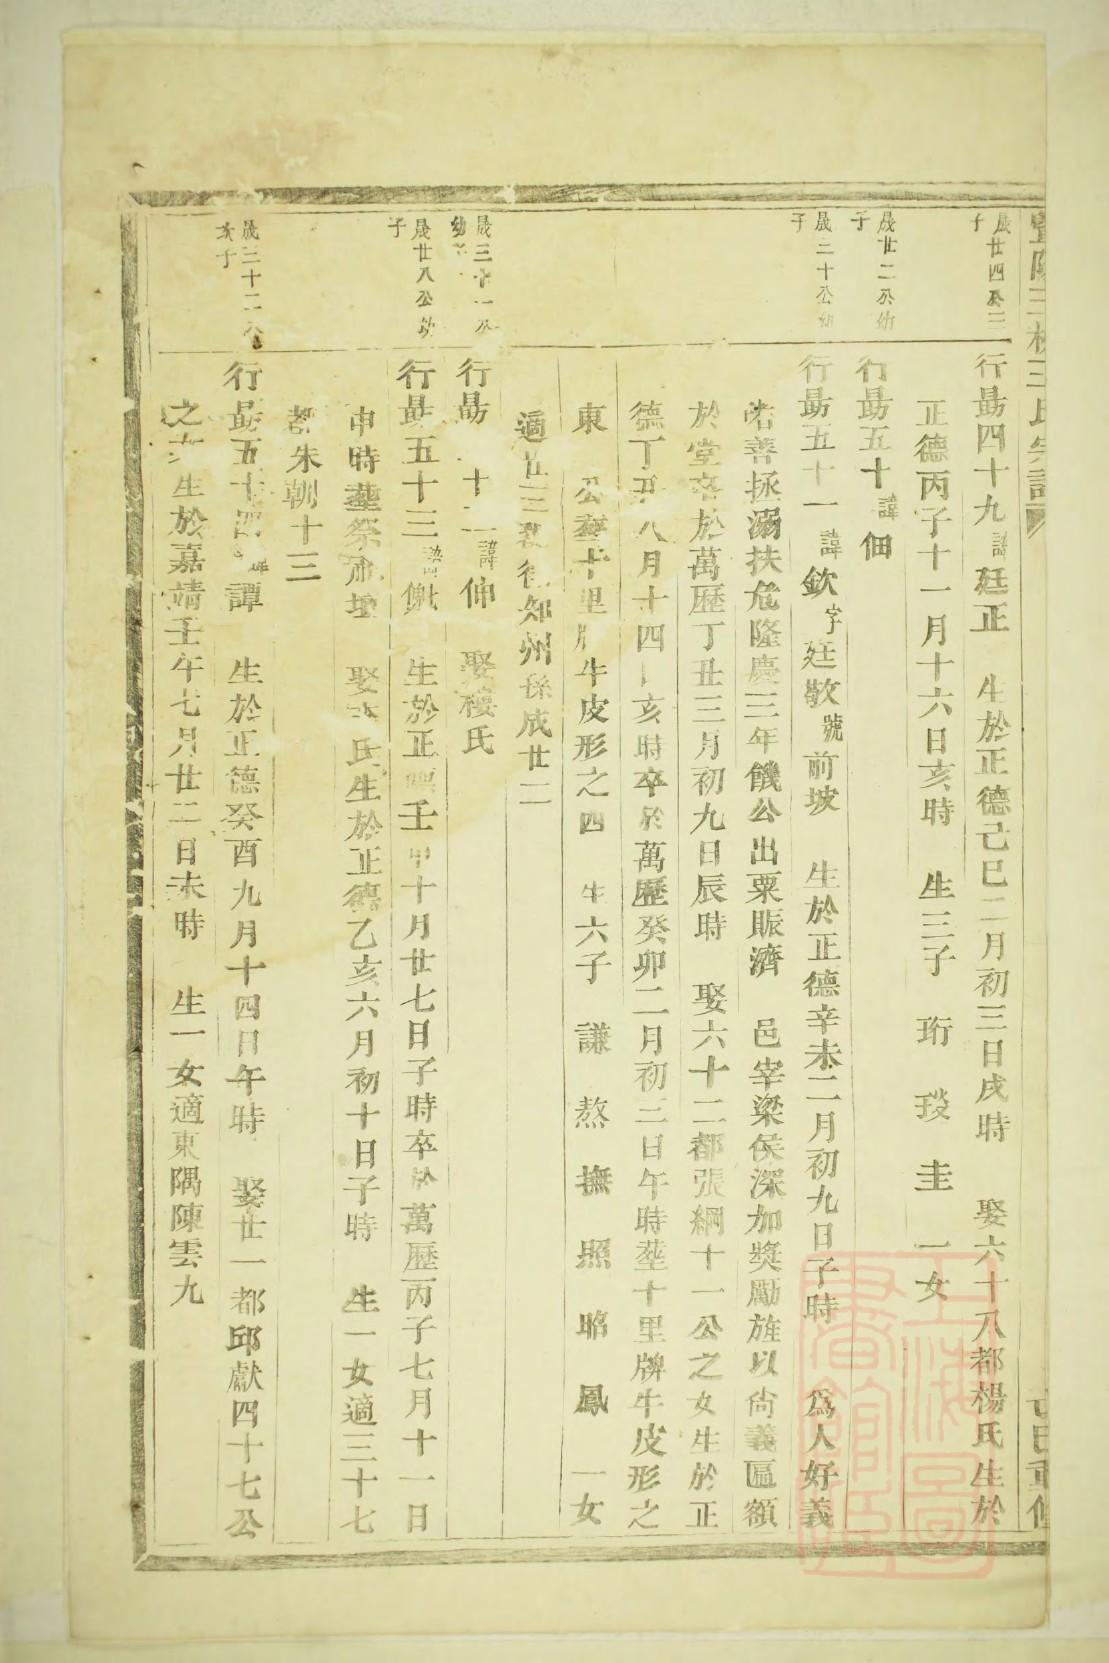 晟廿四公三子
行最四十九諱廷正　生於正德己巳二月初三日戌時　娶六十八都楊氏生於
正德丙子十一月十六日亥時　生三子　珩　琰　圭　一女
晟廿二公幼子
行最五十諱佃
晟二十公幼子
行最五十一諱欽字廷敬號前坡　生於正德辛未二月初九日子時　為人好義
善拯溺扶危隆慶三年饑公出粟賑濟　邑宰梁侯深加獎勵旌以尙義匾額
於堂卒於萬歷丁丑三月初九日辰時　娶六十二都張綱十一公之女生於正
德丁丑八月十四日亥時卒於萬歷癸卯二月初三日午時塟十里牌牛皮形之
東　公塟十里牌牛皮形之四　生六子　謙　熬　撫　照　昭　鳳　一女
適　知州孫成廿二
晟三十一公幼子
行最　十二諱伸　娶樓氏
晟廿八公幼子
行最五十三諱　生於正德壬申十月廿七日子時卒於萬歷丙子七月十一日
申時塟祭　壇　娶　氏生於正德乙亥六月初十日子時　生一女適三十七
都朱朝十三
晟三十二公　子
行最五十四諱譚　生於正德癸酉九月十四日午時　娶廿一都邱獻四十七公
之女生於嘉靖壬午七月廿二日未時　生一女適東隅陳雲九
上海圖書館藏